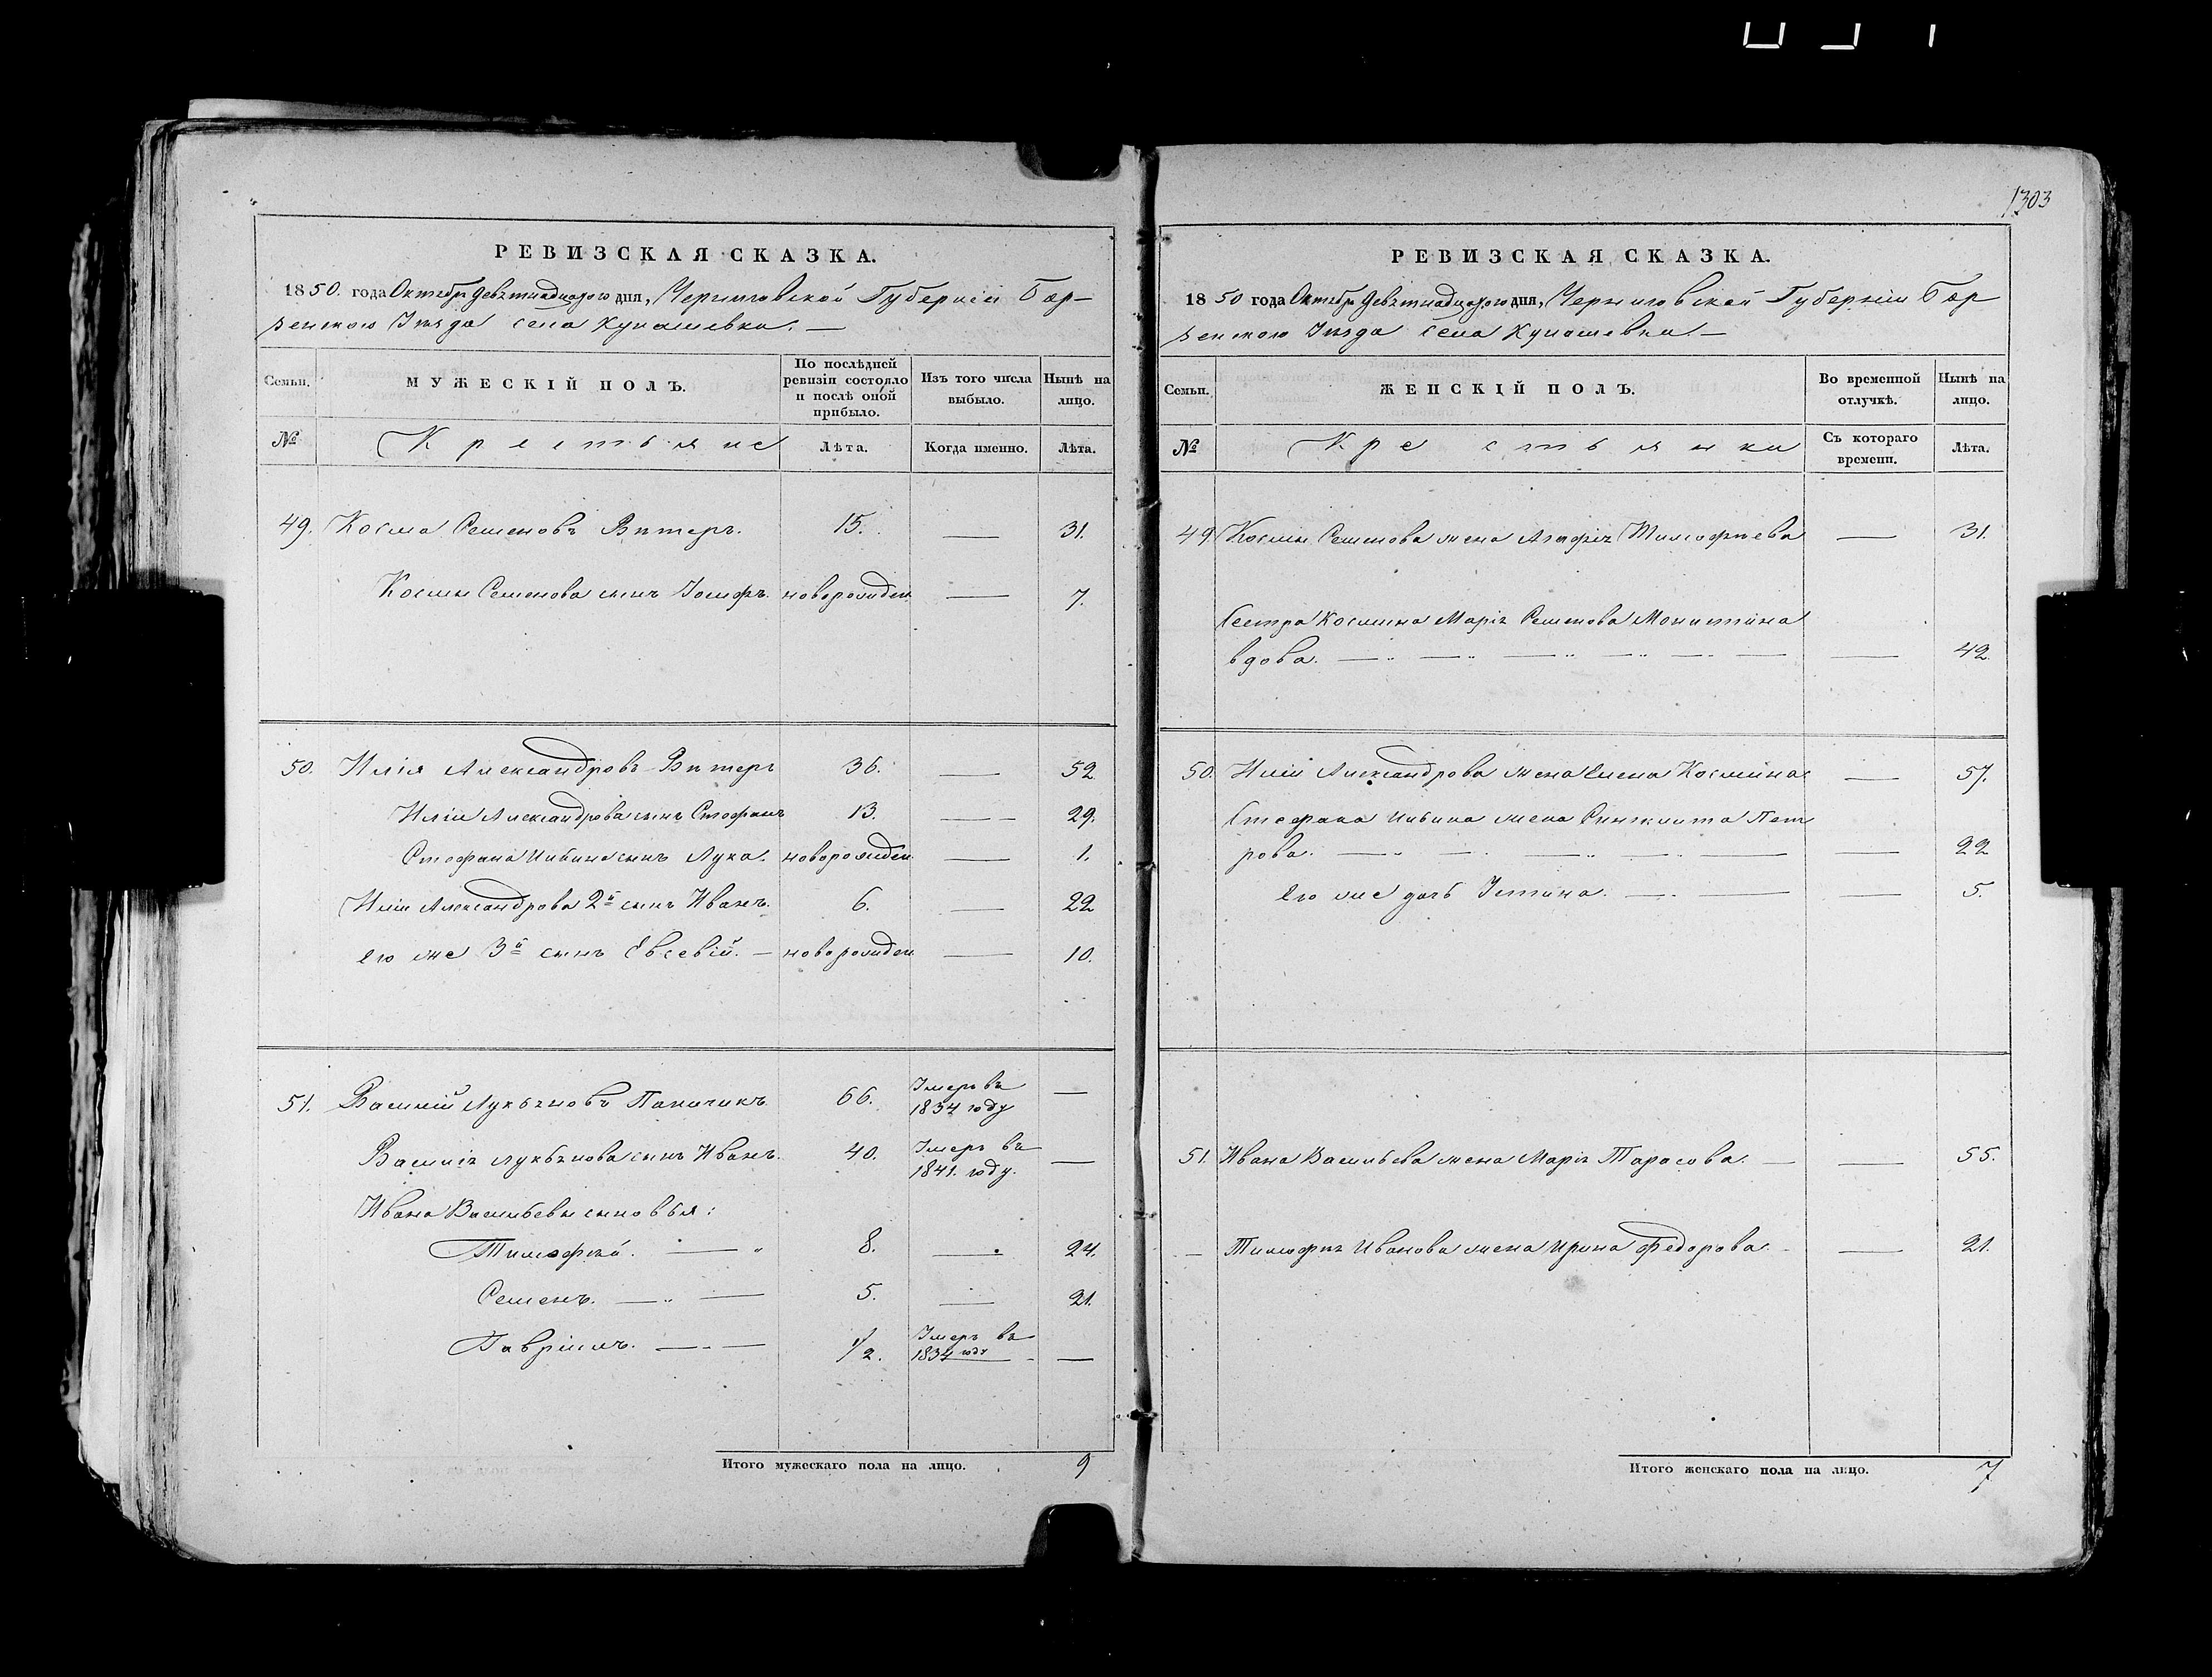 1303
РЕВИЗСКАЯ СКАЗКА.
1850. года Октября девятнадцатого дня, Черниговской Губерніи Бор-
зенского Уѣзда села Кунашевки. —
Семьи. МУЖЕСКІЙ ПОЛЪ. По послѣдней ревизіи состояло и послѣ оной прибыло. Изъ того числа выбыло. Нынѣ на лицо.
№ Крестьяне Лѣта. Когда именно. Лѣта.
49. Косма Семеновъ Вѣтеръ. 15. — 31.
Космы Семенова сынъ Іосифъ. новорожден — 7.
50. Илія Александровъ Вѣтеръ 36. — 52
Иліи Александрова сынъ Стефанъ 13. — 29.
Стефана Ильина сынъ Лука. новорожден — 1.
Иліи Александрова 2й сынъ Иванъ. 6. — 22
его же 3й сынъ Евсевій. — новорожден — 10.
51. Василій Лукьяновъ 66. Умеръ въ 1834 году —
Василія Лукьянова сынъ Иванъ. 40. Умеръ въ 1841. году. —
Ивана Васильева сыновья:
Тимофей. — 8. — 24.
Семенъ. — 5. — 21.
Гавріилъ. — 1/2. Умеръ въ 1834 году —
Итого мужескаго пола на лицо. 9
РЕВИЗСКАЯ СКАЗКА.
1850 года Октября девятнадцатого дня, Черниговской Губерніи Бор
зенского Уѣзда села Кунашевки —
Семьи. ЖЕНСКІЙ ПОЛЪ. Во временной отлучкѣ. Нынѣ на лицо.
№ Крестьянки Съ котораго времени. Лѣта.
49 Космы Семенова жена Агафія Тимофѣева — 31.
Сестра Космина Марія Семенова
вдова. — 42.
50. Иліи Александрова жена Елена Космина — 57.
Стефана Ильина жена Пет
рова. — 22
его же дочь Устина. — 5.
51. Ивана Васильева жена Марія Тарасова. — 55.
— Тимофея Иванова жена Ирина Федорова. — 21.
Итого женскаго пола на лицо. 7